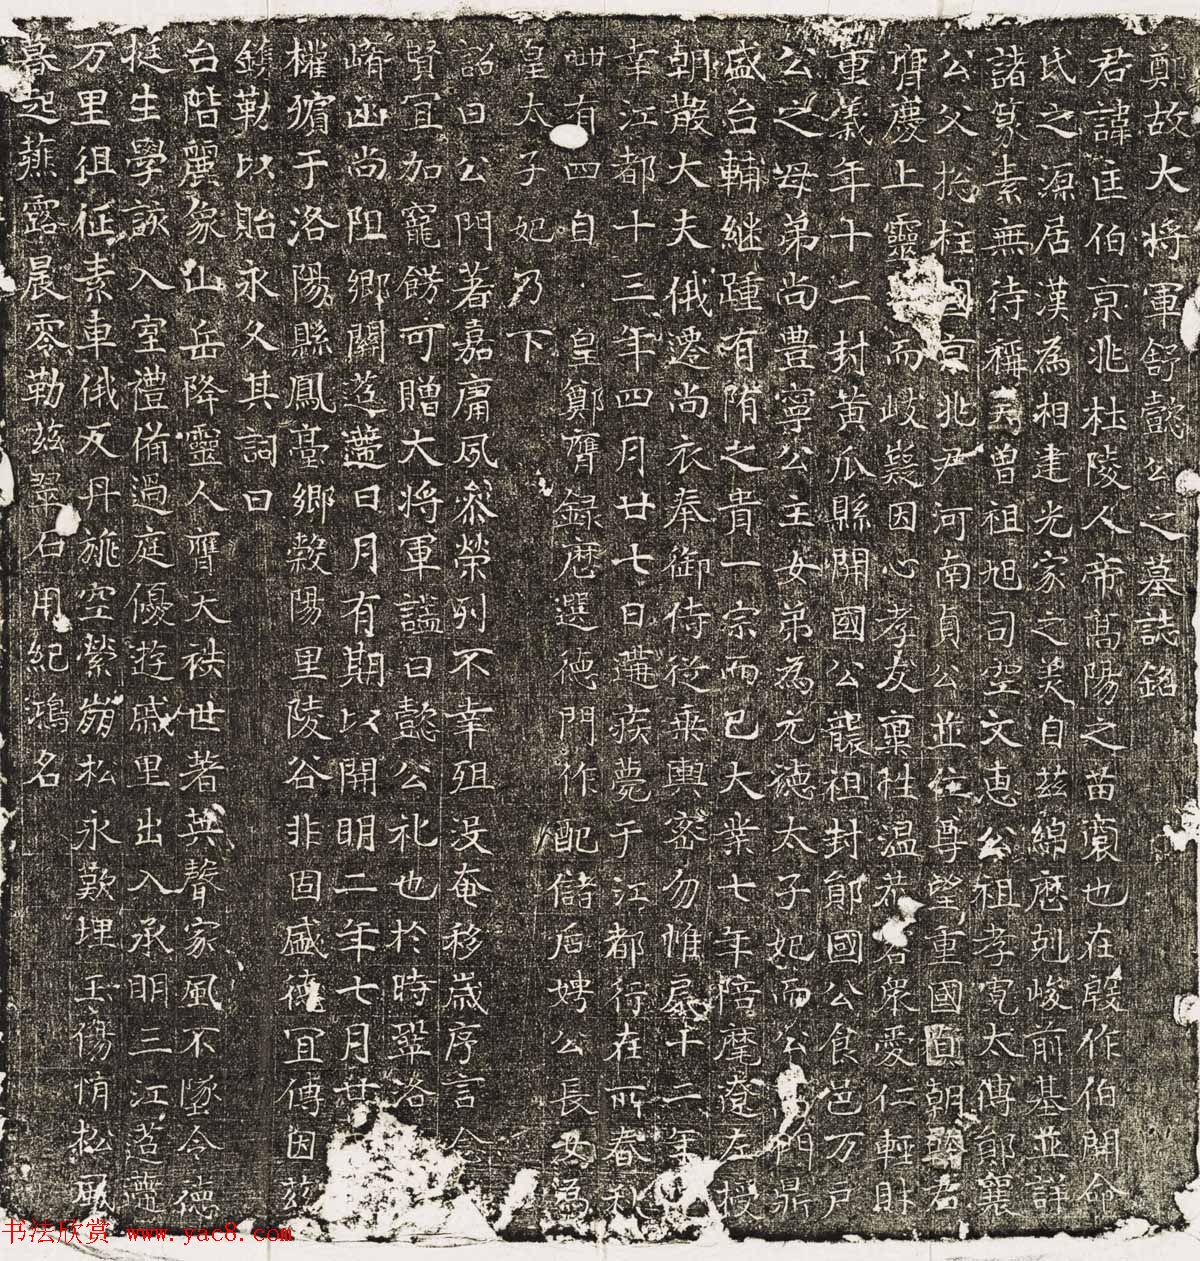 鄭故大將軍舒懿公之墓誌銘
君諱匡伯京兆杜陵人帝髙陽之苗裔也在殷作伯開命
氏之源居漢為相建光家之美自茲綿歷剋峻前基並詳
諸篆素無待稱言曾祖旭司空文惠公祖孝寬太傅鄖襄
公父捴柱國京兆尹河南貞公並位尊望重國
膺慶上靈而岐嶷因心孝友稟性温恭君衆愛仁輕財
重義年十二封黃瓜縣開國公襲祖封鄖國公食邑万户
公之母弟尚豊寧公主女弟為元德太子妃而公門鼎
盛台輔継踵有隋之貴一宗而已大業七年陪麾遼左授
朝散大夫俄遷尚衣奉御侍從乗輿密勿惟扆十二年
幸江都十三年四月廿七日遘疾薨于江都行在所春秋
卌有四自皇鄭膺録歷選德門作配儲后娉公長女為
皇太子妃乃下
詔曰公門著嘉庸夙叅榮列不幸殂没奄移歳序言念
賢宜加寵餝可贈大将軍諡曰懿公礼也於時鞏洛
崤函尚阻鄉關迢遰日月有期以開明二年七月廿
權殯于洛陽縣鳳臺鄉榖陽里陵谷非固盛德宜傳因茲
鎸勒以貽永久其詞曰
台階麗象山岳降靈人膺大祑世著英聲家風不墜令德
挺生學該入室禮備過庭優遊戚里出入承明三江迢遰
万里徂征素車俄反丹旐空縈崩松永歎埋玉傷情松風
暮起薤露晨零勒茲翠石用紀鴻名
书法欣赏 www.yac8.com